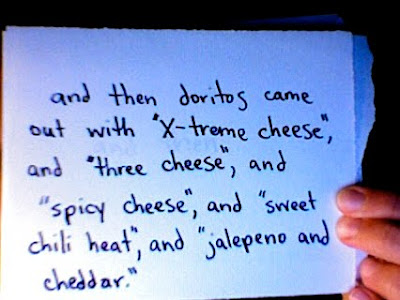 and then doritos came
out with "X-treme cheese",
and "three cheese", and
"spicy cheese", and "sweet
chili heat", and "jalepeno and
cheddar."